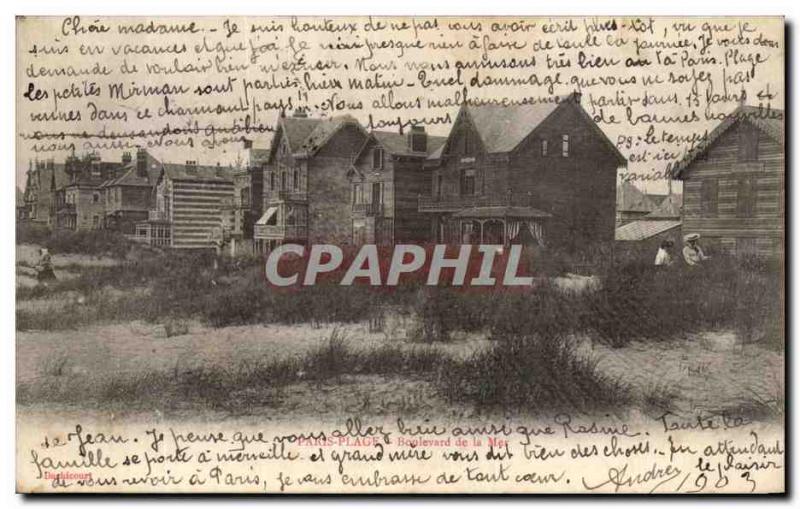 Chère madame. Je suis honteux de ne pas vous avoir écrit plus tôt, vu que je
suis en vacances et que j'ai presque rien à faire de toute la journée. Je vous
demande de vouloir bien m'excuser. Nous nous amusons très bien au à Paris-Plage
Les petites Mirman sont parties hier matin. Quel dommage que vous ne soyez pas
venues dans ce charmant pays!! Nous allons malheureusement partir dans 13 jours et
nous ne demandons qu'à bien
nous aussi. Nous vous
toujours de bonnes nouvelles
PS: Le temps
est ici
variable
CPAPHIL
PARIS-PLAGE - Boulevard de la Mer
de Jean. Je pense que vous allez bien ainsi que Rosine. Toute la
famille se porte à merveille et grand'mère vous dit bien des choses. En attendant
le plaisir
de vous revoir à Paris, je vous embrasse de tout cœur. André 1903